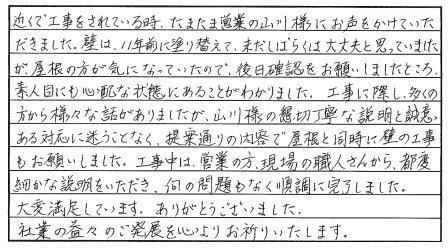 近くで工事をされている時、たまたま営業の山川様にお声をかけていた
だきました。壁は、11年前に塗り替えて、まだしばらくは大丈夫と思っていました
が屋根の方が気になっていたので、後日確認をお願いしましたところ、
素人目にも心配な状態にあることがわかりました。工事に際し、多くの
方から様々な話がありましたが、山川様の懇切丁寧な説明と誠意
ある対応に迷うことなく、提案通りの内容で屋根と同時に壁の工事
もお願いしました。工事中は、営業の方、現場の職人さんから、都度
細かな説明をいただき、何の問題もなく順調に完了しました。
大変満足しています。ありがとうございました。
社業の益々のご発展を心よりお祈りいたします。